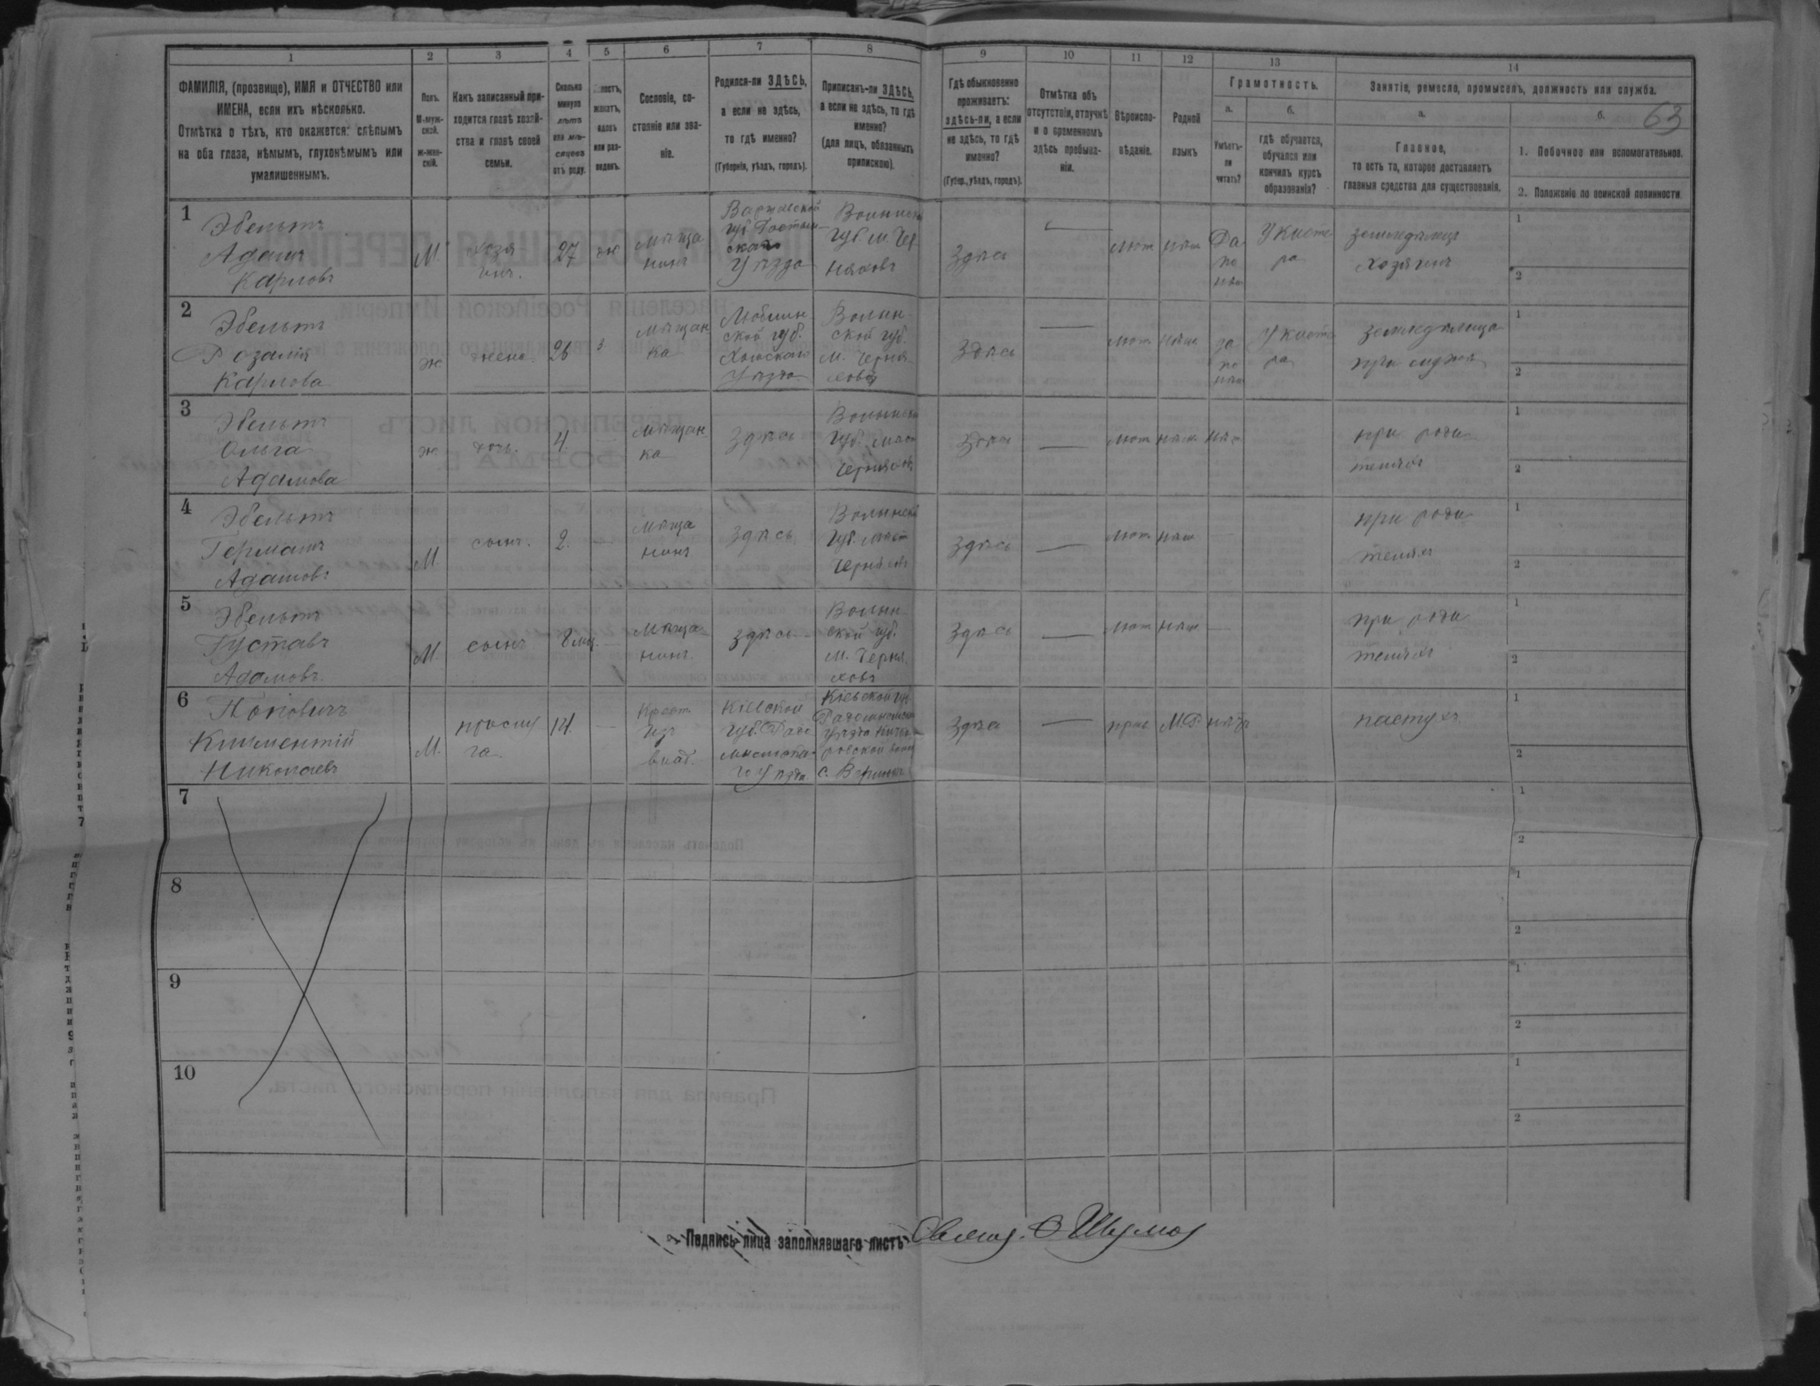 1 2 3 4 5 6 7 8 9 10 11 12 13 14
63
ФАМИЛІЯ, (прозвище), ИМЯ и ОТЧЕСТВО или
ИМЕНА, если ихъ нѣсколько.
Отмѣтка о тѣхъ, кто окажется: слѣпымъ
на оба глаза, нѣмымъ, глухонѣмымъ или
умалишеннымъ.
Полъ.
М-муж-
ской.
ж-жен-
скій.
Какъ записанный при-
ходится главѣ хозяй-
ства и главѣ своей
семьи.
Сколько
минуло
лѣтъ
или мѣ-
сяцевъ
отъ роду.
женатъ,
вдовъ
или раз-
веденъ.
Сословіе, со-
стояніе или зва-
ніе.
Родился-ли ЗДѢСЬ,
а если не здѣсь,
то гдѣ именно?
(Губернія, уѣздъ, городъ).
Приписанъ-ли ЗДѢСЬ,
а если не здѣсь, то гдѣ
именно?
(для лицъ, обязанныхъ
припискою).
Гдѣ обыкновенно
проживаетъ:
здѣсь-ли, а если
не здѣсь, то гдѣ
именно?
(Губер., уѣздъ, городъ).
Отмѣтка объ
отсутствіи, отлучкѣ
и о временномъ
здѣсь пребыва-
ніи.
Вѣроиспо-
вѣданіе.
Родной
языкъ
Грамотность.
а.
Умѣетъ-
ли
читать?
б.
гдѣ обучается,
обучался или
кончилъ курсъ
образованія?
Занятіе, ремесло, промыселъ, должность или служба.
а.
Главное,
то есть то, которое доставляетъ
главныя средства для существованія.
б.
1. Побочное или вспомогательное.
2. Положеніе по воинской повинности
1
Эбельтъ
Адамъ
Карловъ
М.
хозя
инъ.
27
ж
Мѣща
нинъ
Варшавской
губ. Гостын-
скаго
Уѣзда
Волынск
губ. м. Чер
няховъ
Здѣсь
лют
нѣм
Да
по
нѣм
У кисте
ра
земледѣлецъ
хозяинъ
1
2
2
Эбельтъ
Розалія
Карлова
ж
жена
26
з
Мѣщан
ка
Люблин
ской губ.
Холмскаго
Уѣзда
Волын-
ской губ.
м. Черня-
ховъ
Здѣсь
лют
нѣм
да
по
нѣм
У кисте
ра
земледѣлица
при мужѣ
1
2
3
Эбельтъ
Ольга
Адамова
ж
дочь.
4.
Мѣщан
ка
Здѣсь
Волынск
губ. мѣст
Черняховъ
Здѣсь
лют
нѣм
нѣт
при роди
теляхъ
1
2
4
Эбельтъ
Германъ
Адамовъ
М.
сынъ.
2.
Мѣща
нинъ
Здѣсь
Волынск
губ. мѣст
Черняховъ
Здѣсь
лют
нѣм
при роди
теляхъ
1
2
5
Эбельтъ
Густавъ
Адамовъ
М.
сынъ
8 мѣс.
Мѣща
нинъ.
Здѣсь
Волын-
ской губ.
м. Черня
ховъ
Здѣсь
лют
нѣм
при роди
теляхъ
1
2
6
Поповичъ
Климентій
Николаевъ
М.
прислу
га.
14.
Крест
изъ
влад.
Кіевской
губ. Радо
мысльска-
го уѣзда
Кіевской гу.
Радомысльскаго
с.
Здѣсь
прав
М.Р.
нѣтъ
пастухъ
1
2
7
1
2
8
1
2
9
1
2
10
1
2
Подпись лица заполнявшаго листъ